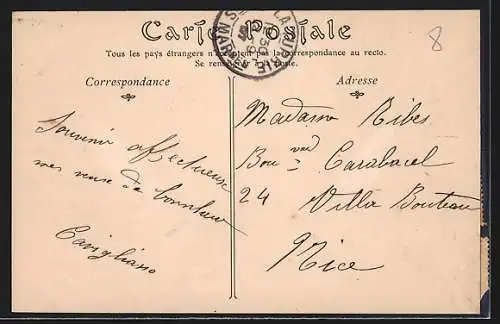 Carte Postale
Tous les pays étrangers n'acceptent pas la correspondance au recto.
Se renseigner à la Poste.
Correspondance
Adresse
8
Souvenir affectueuse
mes veux de bonheur
Madame Ribes
Bou vard Carabacel
24 Villa Bouteau
Nice